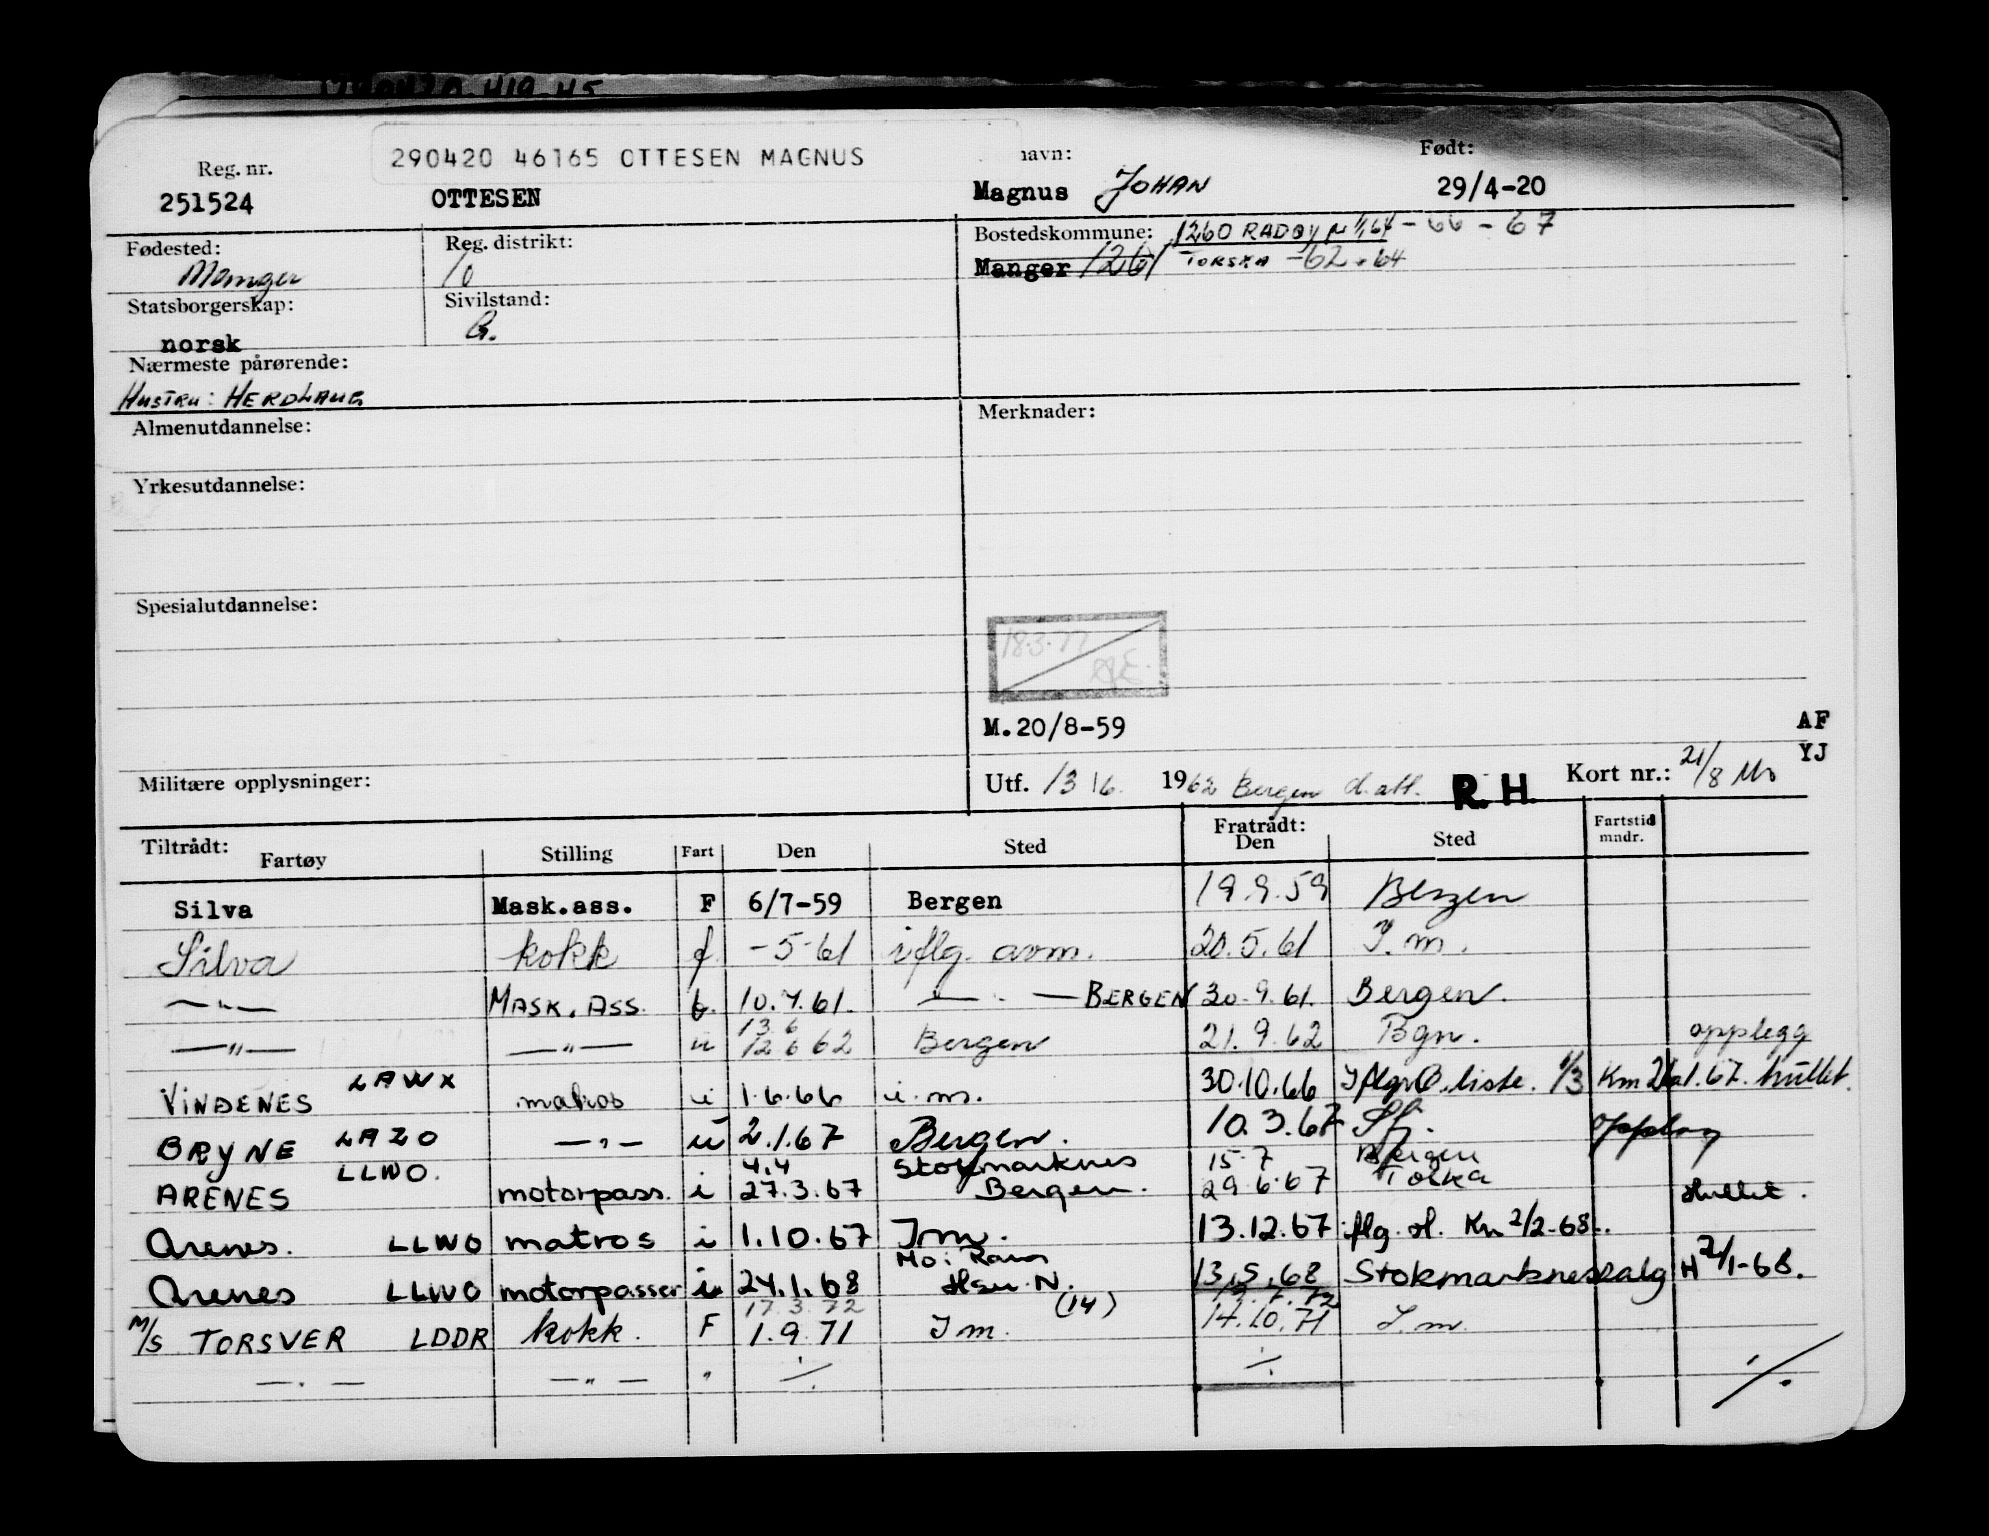 290420 46165 OTTESEN MAGNUS
Reg. nr. navn: Født:
251524 OTTESEN Magnus JOHAN 29/4-20
Fødested: Reg. distrikt: Bostedskommune: 1260 RADØY 1/1,64 - 66 - 67
Manger 10 Manger 1261 TORSKA -62-64
Statsborgerskap: Sivilstand:
norsk G.
Nærmeste pårørende:
HUSTRU: HERDLAUG
Almenutdannelse: Merknader:
Yrkesutdannelse:
Spesialutdannelse:
18.3.77
AE.
M.20/8-59 AF
YJ
Militære opplysninger: Utf. 13/6. 1962 Bergen d. att. R.H. Kort nr.: 21/8 Mo
Tiltrådt: Fratrådt: Fartstid
Fartøy Stilling Fart Den Sted Den Sted mndr.
Silva Mask.ass. F 6/7-59 Bergen 19.9.59 Bergen
Silva kokk f. -5-61 iflg. avm. 20.5.61 I.m.
— " — MASK. ASS. f. 10.7.61. — . — BERGEN 30.9.61. Bergen.
13.6
— " — — " — u 12.6 62 Bergen 21.9.62 Bgn. opplegg
VINDENES LAWX matros i 1.6.66 i.m. 30.10.66 Iflg. O. liste. 1/3 Km 1.67. hullet.
BRYNE LAZO — " — u 2.1.67 Bergen. 10.3.67 Sfj. opplag
4.4 Stokmarknes 15.7 Bergen
ARENES LLWO. motorpass. i 27.3.67 Bergen. 29.6.67 Torska Hullet.
Arenes. LLWO matros i 1.10.67 I.m. 13.12.67 iflg. H. Km 2/2-68.
Mo i Rana
Arenes LLWO motorpasser i 24.1.68 N. 13.5.68 Stokmarknes salg H 21/1-68.
17.3.72 (14)
M/S TORSVER LDDR kokk. F 1.9.71 I m. 14.10.71 I.m.
— . — — " — " ./. ./. ./.